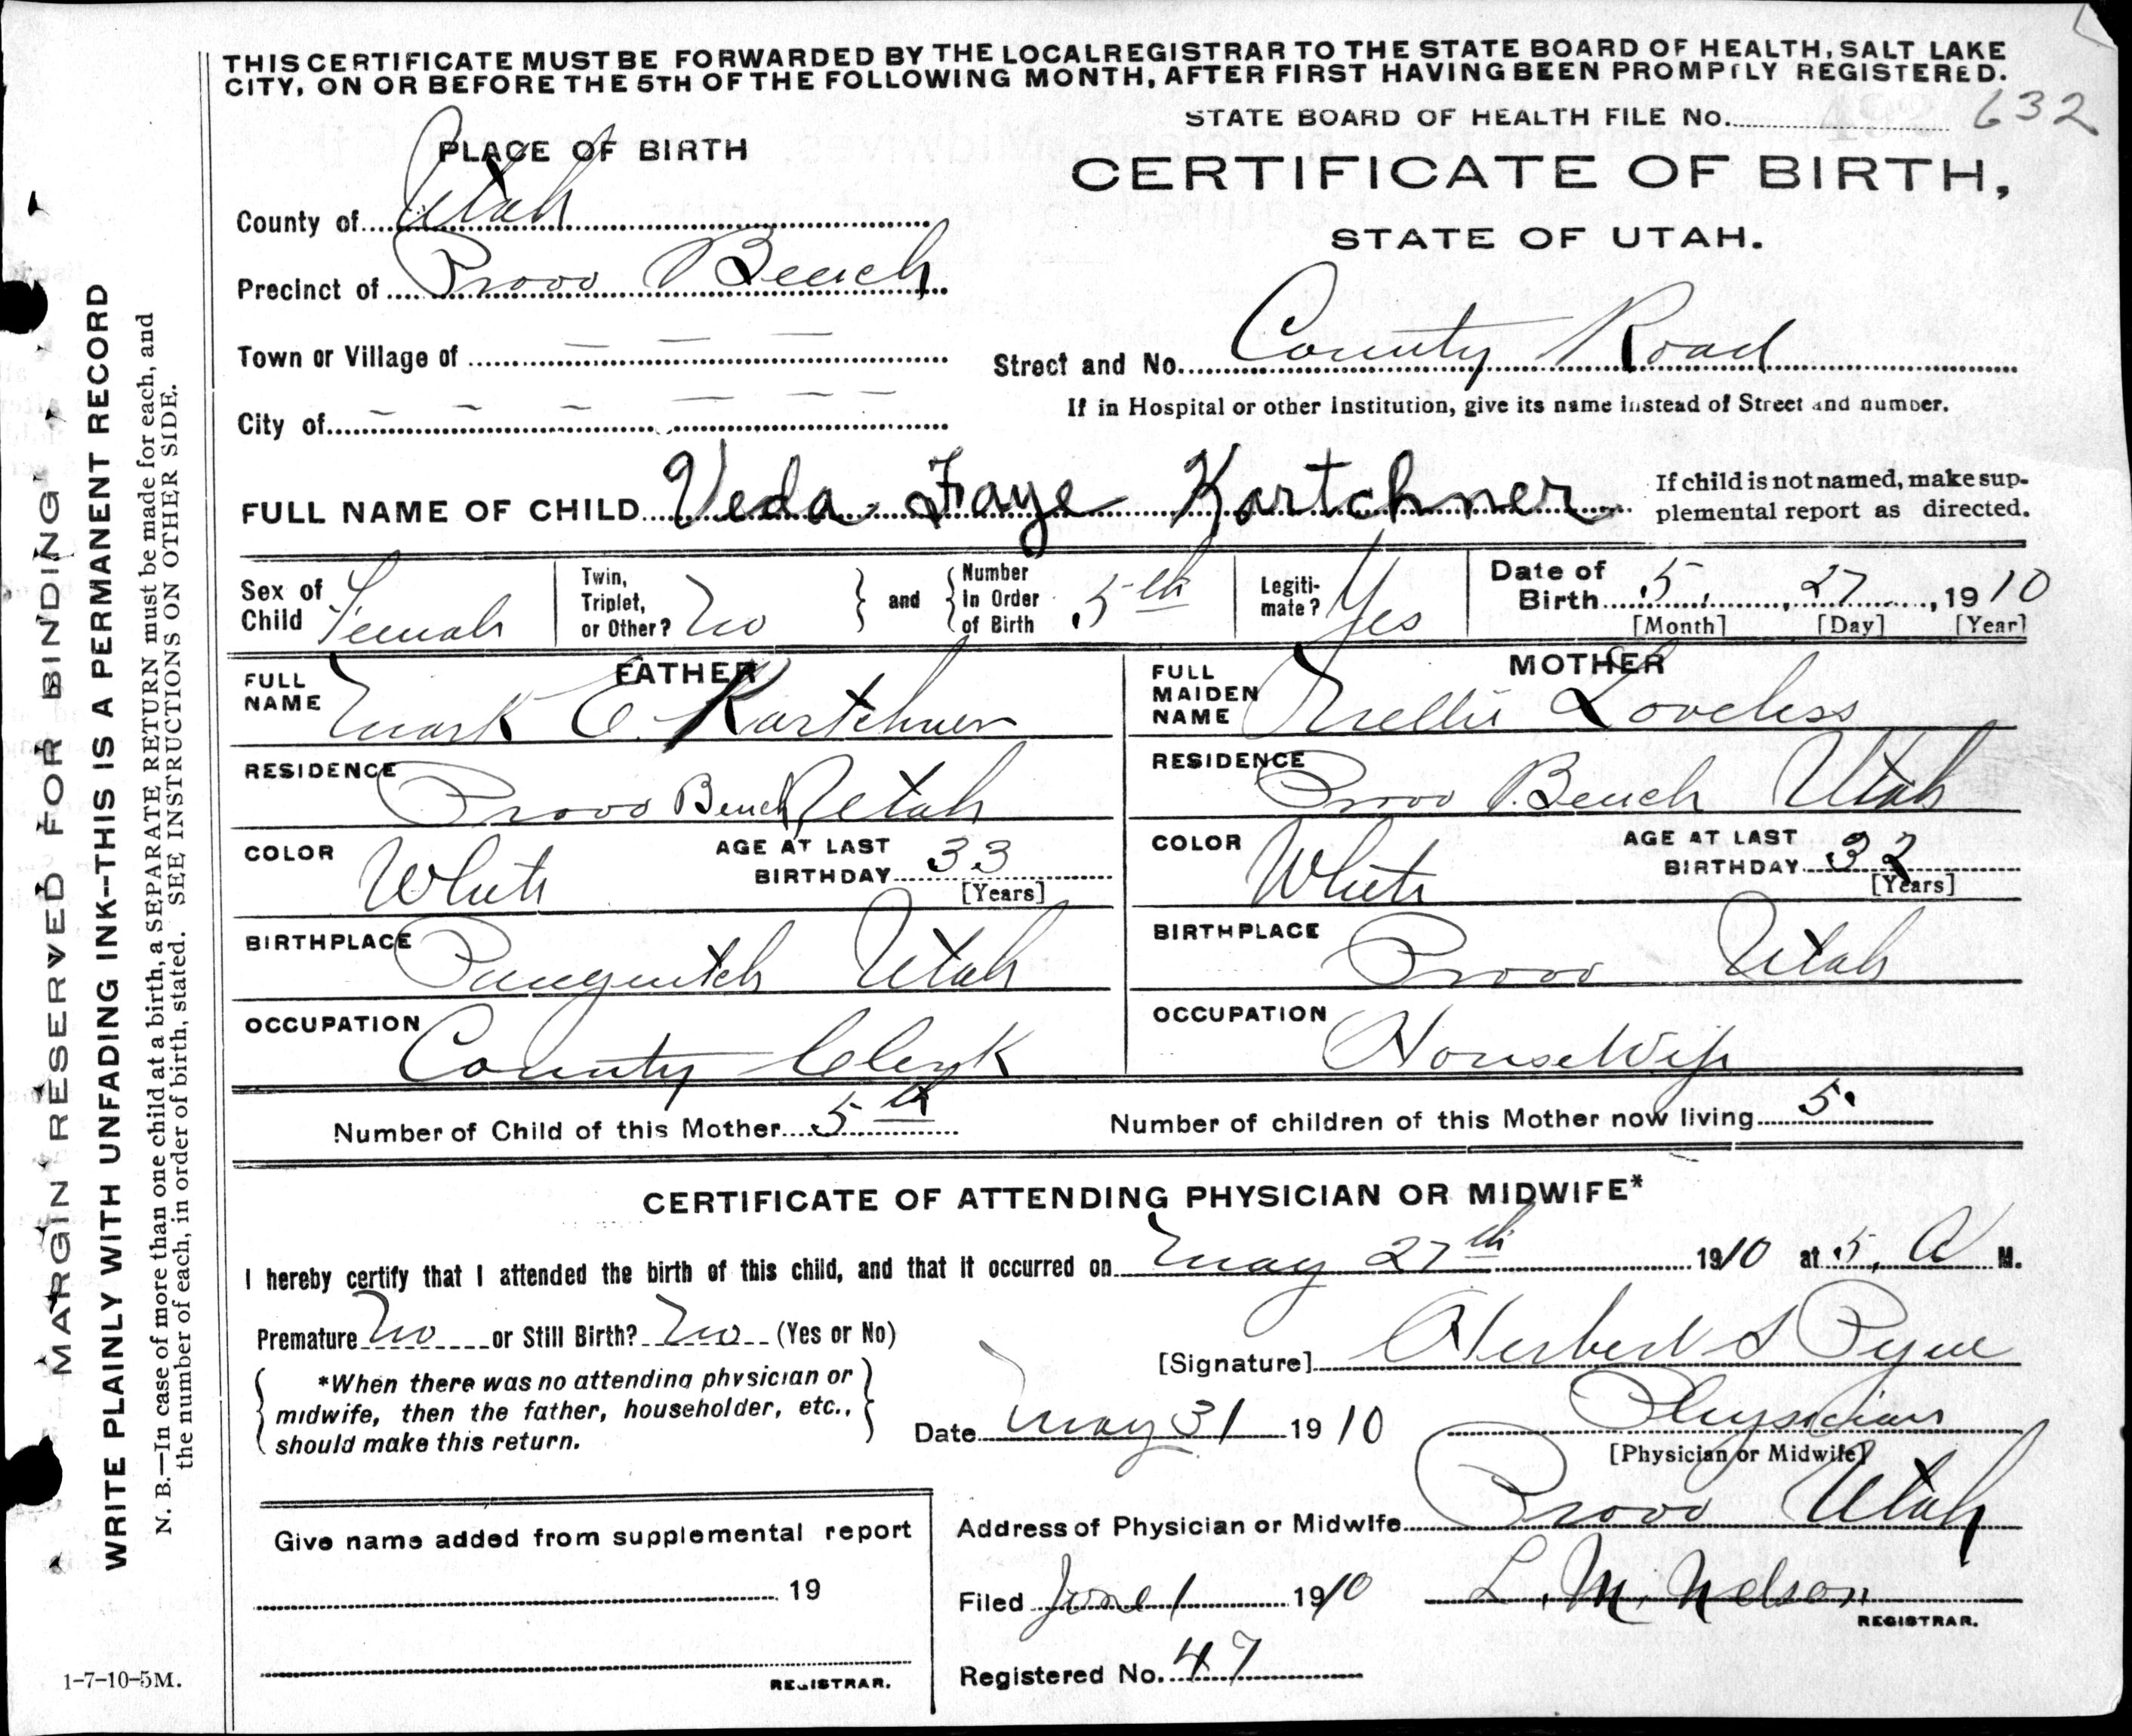 THIS CERTIFICATE MUST BE FORWARDED BY THE LOCAL REGISTRAR TO THE STATE BOARD OF HEALTH, SALT LAKE
CITY, ON OR BEFORE THE 5TH OF THE FOLLOWING MONTH, AFTER FIRST HAVING BEEN PROMPTLY REGISTERED.
STATE BOARD OF HEALTH FILE No. 632
PLACE OF BIRTH
CERTIFICATE OF BIRTH,
STATE OF UTAH.
County of Utah
Precinct of Provo Bench
Town or Village of — — — —
Street and No. County Road
If in Hospital or other Institution, give its name instead of Street and number.
City of — — — — — —
FULL NAME OF CHILD Veda Faye Kartchner
If child is not named, make sup-
plemental report as directed.
Sex of Child Female
Twin, Triplet, or Other? No
and
Number in Order of Birth 5th
Legiti-mate? Yes
Date of Birth 5, 27, 1910
[Month] [Day] [Year]
FATHER
FULL NAME Mark E. Kartchner
RESIDENCE Provo Bench, Utah
COLOR White
AGE AT LAST BIRTHDAY 33
[Years]
BIRTHPLACE Panguitch Utah
OCCUPATION County Clerk
MOTHER
FULL MAIDEN NAME Nellie Loveless
RESIDENCE Provo Bench Utah
COLOR White
AGE AT LAST BIRTHDAY 32
[Years]
BIRTHPLACE Provo Utah
OCCUPATION HouseWife
Number of Child of this Mother 5th
Number of children of this Mother now living 5.
CERTIFICATE OF ATTENDING PHYSICIAN OR MIDWIFE*
I hereby certify that I attended the birth of this child, and that it occurred on May 27th 1910 at 5, A M.
Premature No or Still Birth? No (Yes or No)
[Signature] Herbert S Pyne
*When there was no attending physician or
midwife, then the father, householder, etc.,
should make this return.
Date May 31 1910
Physician
[Physician or Midwife]
Address of Physician or Midwife Provo Utah
Give name added from supplemental report
19
REGISTRAR.
Filed June 1 1910
L. M. Nelson
REGISTRAR.
Registered No. 47
MARGIN RESERVED FOR BINDING
WRITE PLAINLY WITH UNFADING INK--THIS IS A PERMANENT RECORD
N. B.—In case of more than one child at a birth, a SEPARATE RETURN must be made for each, and
the number of each, in order of birth, stated. SEE INSTRUCTIONS ON OTHER SIDE.
1-7-10-5M.